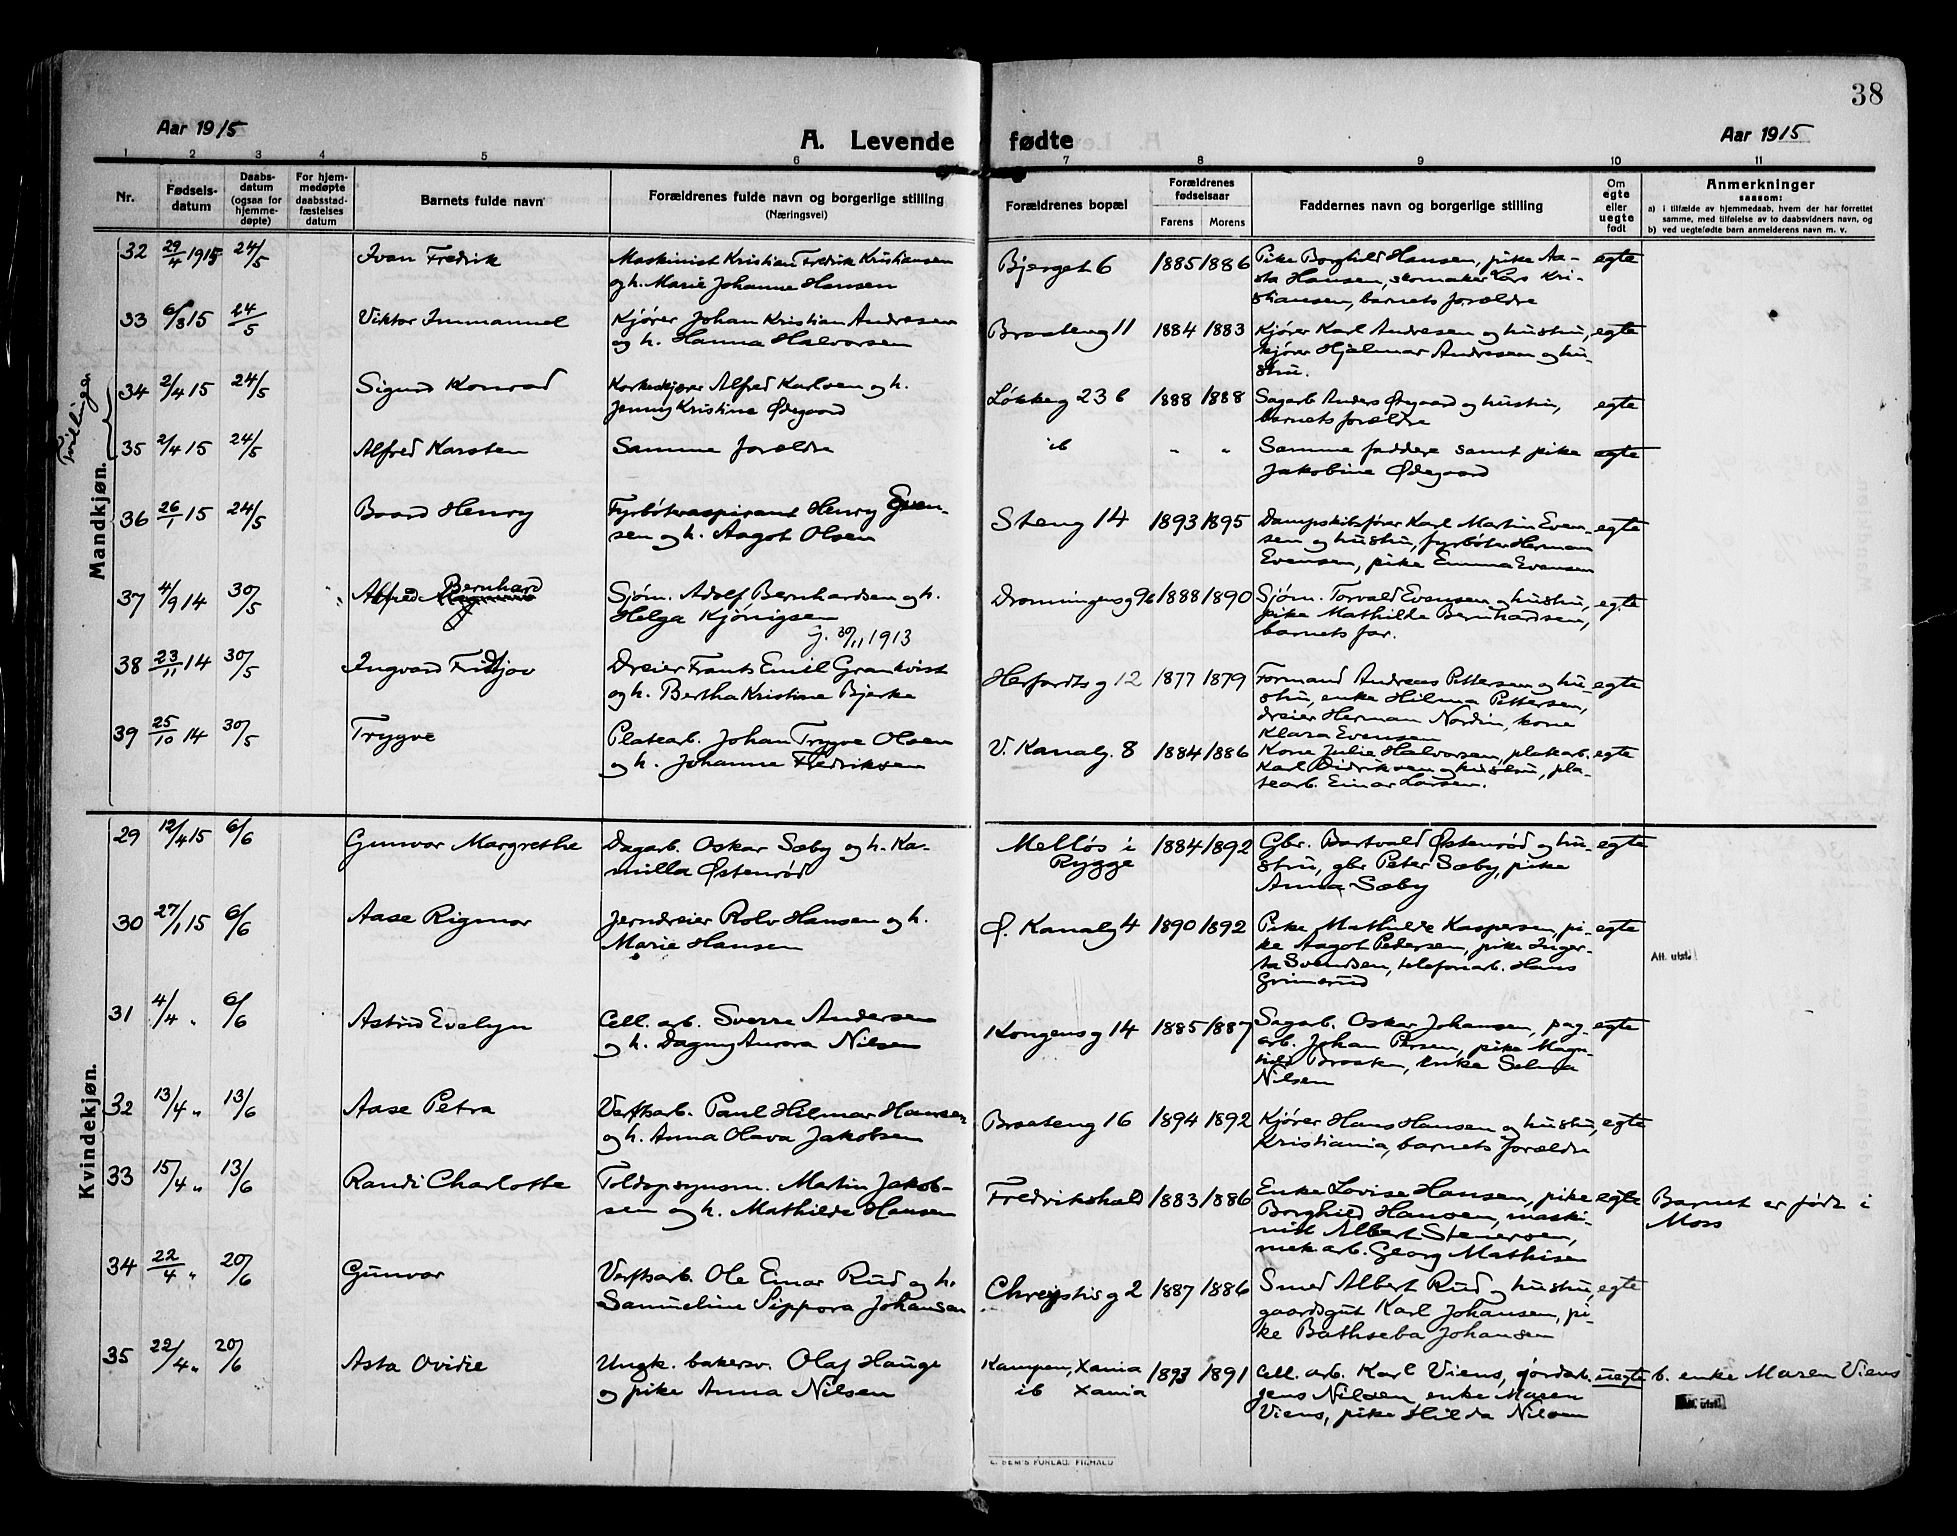 38
Aar 1915
A. Levende fødte
Aar 1915
1 2 3 4 5 6 7 8 9 10 11
Nr.
Fødsels-
datum
Daabs-
datum
(ogsaa for
hjemme-
døpte)
For hjem-
medøpte
daabsstad-
fæstelses
datum
Barnets fulde navn
Forældrenes fulde navn og borgerlige stilling
(Næringsvei)
Forældrenes bopæl
Forældrenes
fødselsaar
Farens Morens
Faddernes navn og borgerlige stilling
Om
egte
eller
uegte
født
Anmerkninger
saasom:
a) i tilfælde av hjemmedaab, hvem der har forrettet
samme, med tilføielse av to daabsvidners navn, og
b) ved uegtefødte barn anmelderens navn m. v.
Mandkjøn.
Tvillinger
32 29/4 1915 24/5 Ivan Fredrik Maskinist Kristian Fredrik Kristiansen Bjerget 6 1885 1886 Pike Borghild Hansen, pike Aa- egte
og h. Marie Johanne Hansen sta Hansen, skomaker Lars Kri-
stiansen, barnets forældre
33 6/3 15 24/5 Viktor Immanuel Kjører Johan Kristian Andresen Braateng 11 1884 1883 Kjører Karl Andresen og hustru, egte
og h. Hanna Halvorsen kjører Hjalmar Andresen og hu-
stru.
34 2/4 15 24/5 Sigurd Konrad Korkeskjærer Alfred Karlsen og h. Løkkeg 23 b 1888 1888 Sagarb Anders Ødegaard og hustru, egte
Jenny Kristine Ødegaard barnets forældre
35 2/4 15 24/5 Alfred Karsten Samme forældre ib " " Samme faddere samt pike egte
Jakobine Ødegaard
36 26/1 15 24/5 Baard Henry Fyrbøteraspirant Henry Even- Steng 14 1893 1895 Dampskibsfører Karl Martin Even- egte
sen og h. Aagot Olsen sen og hustru, fyrbøter Herman
Evensen, pike Emma Evensen
37 4/9 14 30/5 Alfred Bernhard Sjøm. Adolf Bernhardsen og h. Dronningensg 9b 1888 1890 Sjøm. Torvald Evensen og hustru, egte
Helga Kjønigsen pike Mathilde Bernhardsen,
g. 30/11 1913 barnets far.
38 23/11 14 30/5 Ingvard Fridtjov Dreier Frants Emil Grankvist Herfordts g 12 1877 1879 Formand Andreas Pettersen og hu- egte
og h. Bertha Kristine Bjerke stru, enke Hilma Pettersen,
dreier Herman Nordin, kone
Klara Evensen
39 25/10 14 30/5 Trygve Platearb. Johan Trygve Olsen V. Kanalg. 8 1884 1886 Kone Julie Halvorsen, platearb. egte
og h. Johanne Fredriksen Karl Didriksen og hustru, pla-
tearb. Einar Larsen.
Kvindekjøn.
29 12/4 15 6/6 Gunvor Margrethe Dagarb. Oskar Sæby og h. Ka- Melløs i 1884 1892 Gbr. Bartvald Østenrød og hu- egte
milla Østenrød Rygge stru, gbr Peter Sæby, pike
Anna Sæby
30 27/1 15 6/6 Aase Rigmor Jerndreier Rolv Hansen og h. Ø. Kanalg 4 1890 1892 Pike Mathilde Kaspersen, pi- egte
Marie Hansen ke Aagot Pedersen, pike Inger- Att. utst.
ta Svendsen, telefonarb. Hans
Grimsrud
31 4/4 " 6/6 Astrid Evelyn Cell. arb. Sverre Andersen Kongens g 14 1885 1887 Sagarb. Oskar Johansen, pag- egte
og h. Dagny Aurora Nilsen arb. Johan Persen, pike Magn-
hild Braaten, enke Selma
Nilsen
32 13/4 " 13/6 Aase Petra Verftsarb. Paul Hilmar Hansen Braateng 16 1894 1892 Kjører Hans Hansen og hustru, egte
og h. Anna Olava Jakobsen Kristiania, barnets forældre
33 15/4 " 13/6 Randi Charlotte Toldopsynsm. Martin Jakob- Fredrikshald 1883 1886 Enke Lovise Hansen, pike egte Barnet er født i
sen og h. Mathilde Hansen Borghild Hansen, maski- Moss
nist Albert Stenersen,
mek arb. Georg Mathisen
34 22/4 " 20/6 Gunvor Verftsarb. Ole Einar Rud og h. Chrystis g 2 1887 1886 Smed Albert Rud og hustru, egte
Samueline Sippora Johansen gaardsgut Karl Johansen, pi-
ke Bathseba Johansen
35 22/4 " 20/6 Asta Ovidie Ungk. bakersv. Olaf Hauge Kampen, Xania 1893 1891 Cell. arb. Karl Viens, jordarb. uegte b. enke Maren Viens
og pike Anna Nilsen ib Xania Jens Nilsen, enke Maren Att. utst.
Viens, pike Hilda Nilsen
E. SEM'S FORLAG, FR.HALD